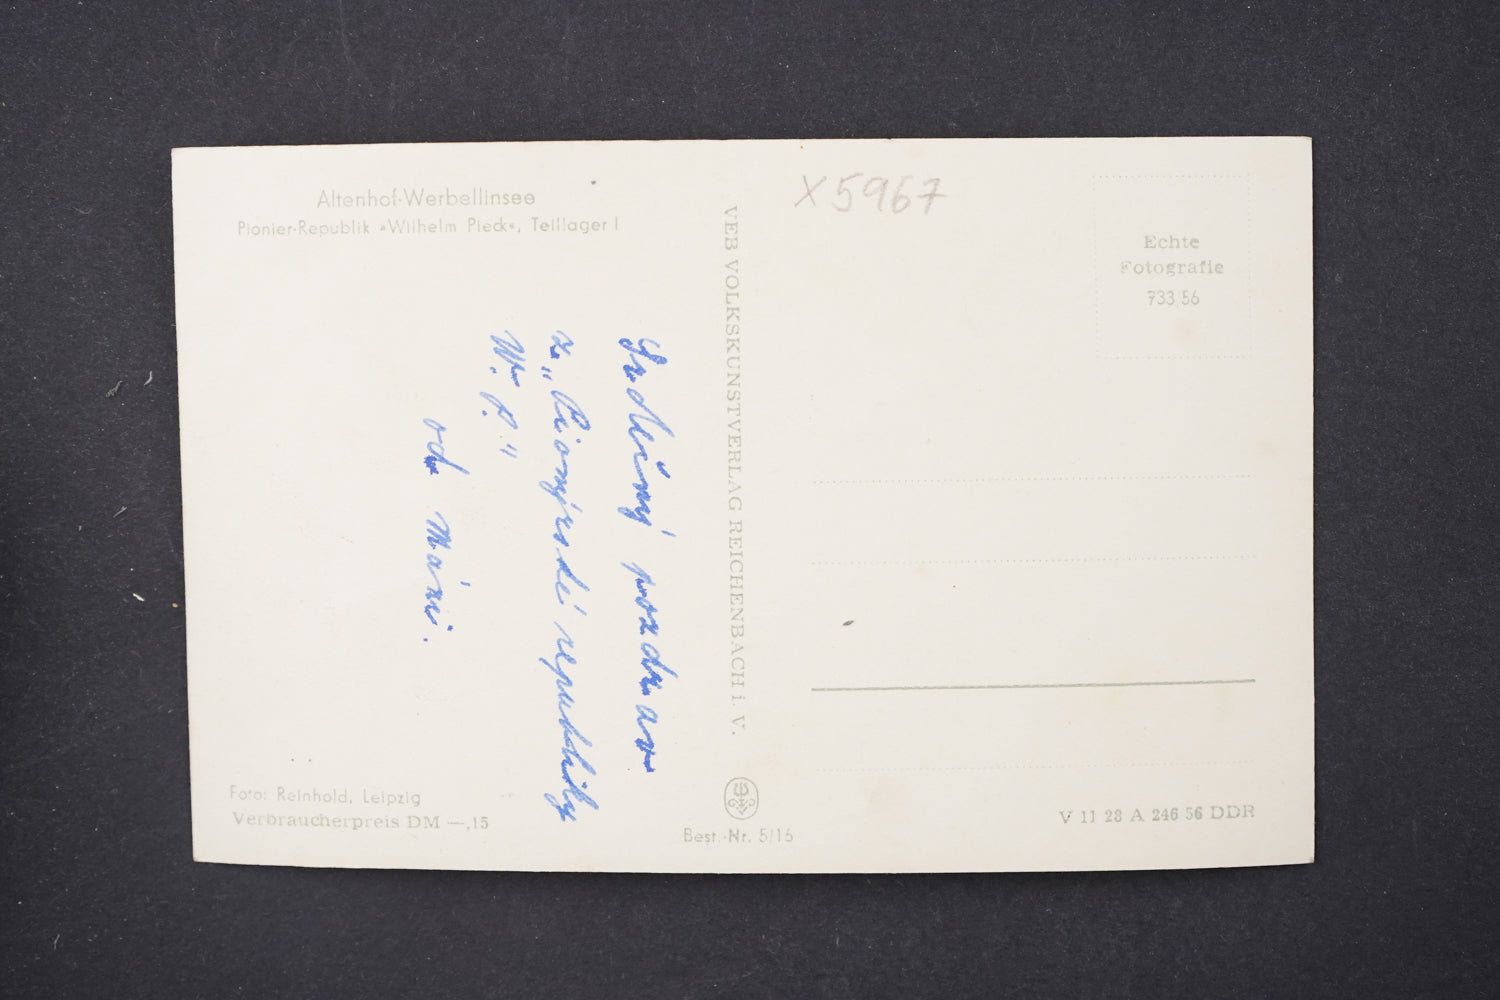 Altenhof-Werbellinsee
Pionier-Republik »Wilhelm Pieck«, Teillager I
Srdečný pozdrav
z „Pionýrské republiky
W. P."
od Máni.
Foto: Reinhold, Leipzig
Verbraucherpreis DM —,15
VEB VOLKSKUNSTVERLAG REICHENBACH i. V.
Best.-Nr. 5/16
X5967
Echte
Fotografie
733 56
V 11 28 A 246 56 DDR